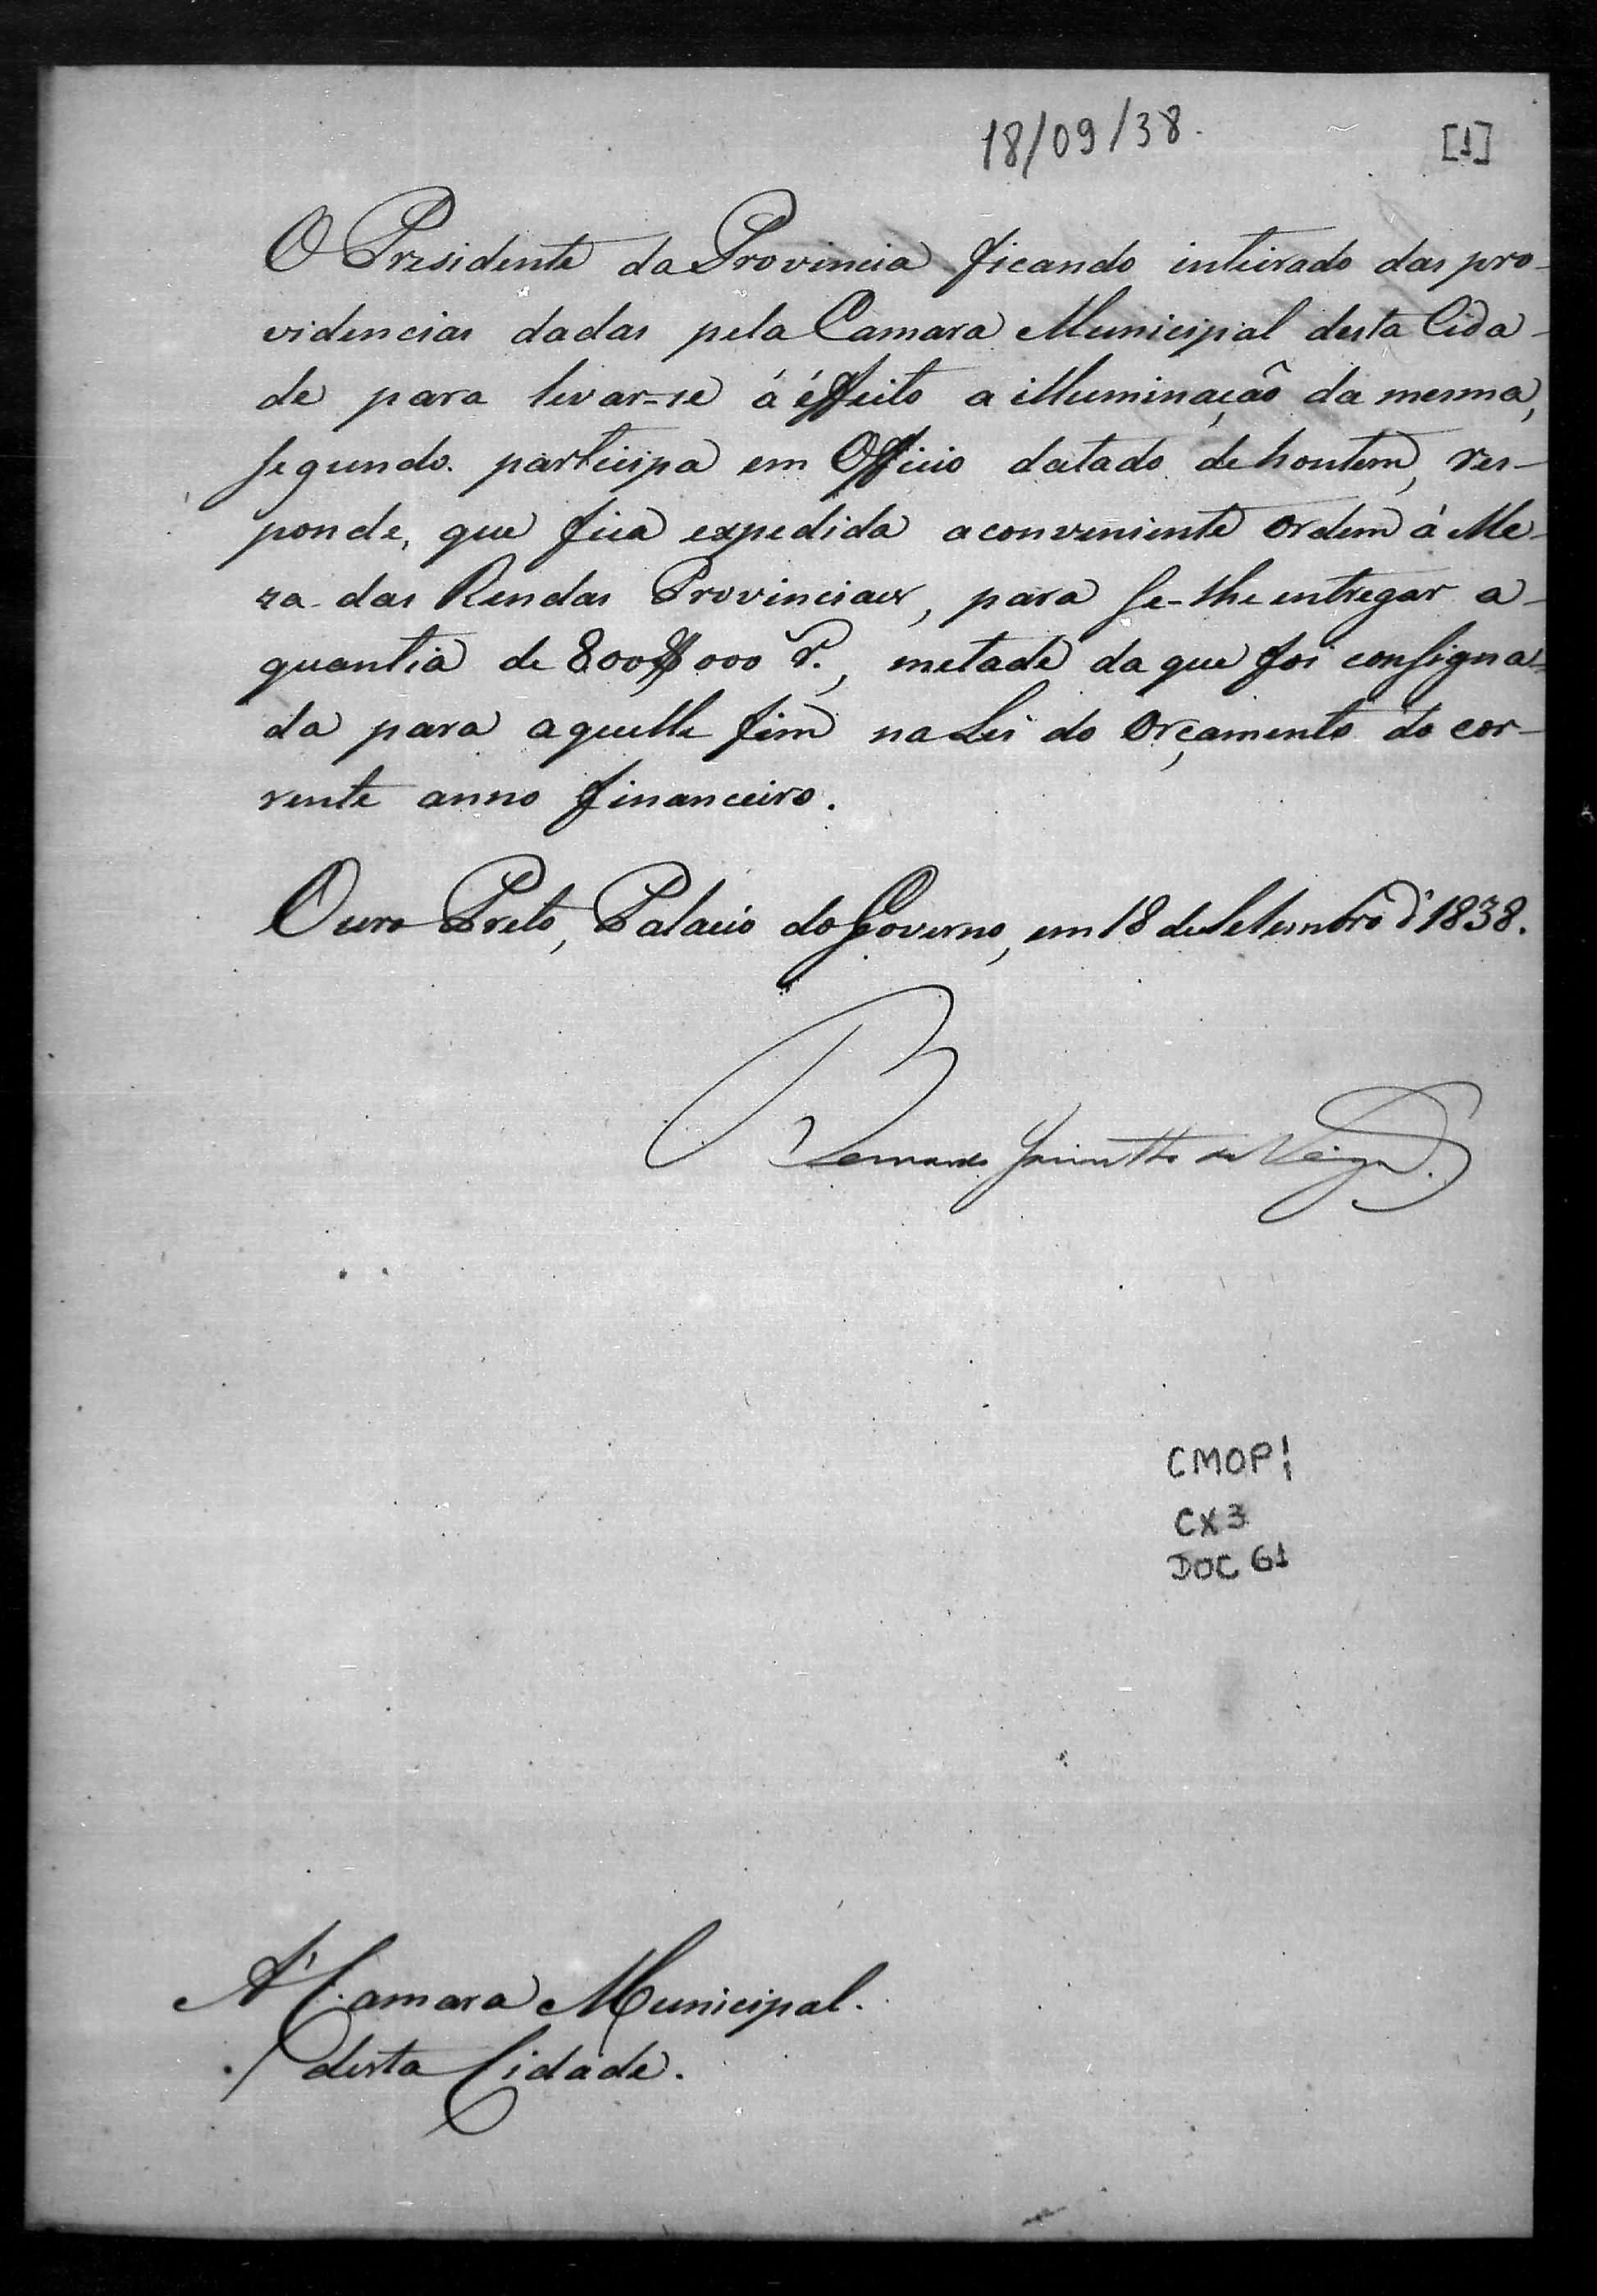 18/09/38.
[1]
O Presidente da Provincia ficando inteirado das pro-
videncias dadas pela Camara Municipal desta Cida-
de para levar-se á éffeito a illuminação da mesma,
segundo participa em Officio datado de hontem, res-
ponde, que fica expedida a conveniente ordem á Me-
za das Rendas Provinciaes, para se-lhe entregar a
quantia de 800$000 r.^s, metade da que foi consigna-
da para aquelle fim na Lei do Orçamento do cor-
rente anno financeiro.
Ouro Preto, Palacio do Governo, em 18 de Setembro d' 1838.
Bernardo Jacintho da Veiga.
CMOP1
CX3
DOC 61
A' Camara Municipal
desta Cidade.